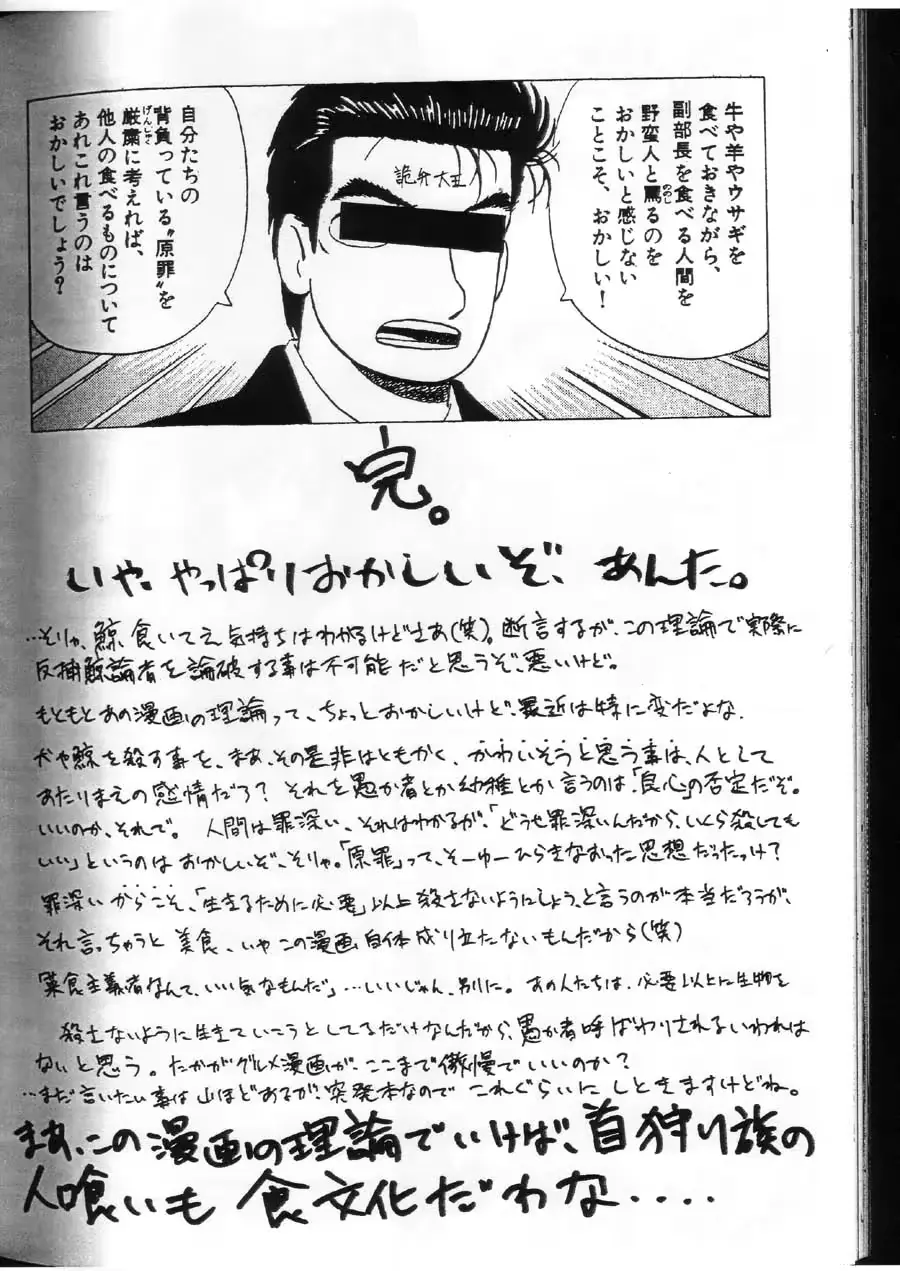 牛や羊やウサギを
食べておきながら、
副部長を食べる人間を
野蛮人と罵るのを
おかしいと感じない
ことこそ、おかしい！
ののし
詭弁大王
自分たちの
背負っている〝原罪〟を
厳粛に考えれば、
げんしゅく
他人の食べるものについて
あれこれ言うのは
おかしいでしょう？
完。
いや、やっぱりおかしいぞ、あんた。
…そりゃ、鯨食いてえ気持ちはわかるけどさあ(笑)。断言するが、この理論で実際に
反捕鯨論者を論破する事は不可能だと思うぞ、悪いけど。
もともとあの漫画の理論って、ちょっとおかしいけど、最近は特に変だよな.
犬や鯨を殺す事を、まあ、その是非はともかく、かわいそうと思う事は、人として
あたりまえの感情だろ？それを愚か者とか幼稚とか言うのは、「良心」の否定だぞ。
いいのか、それで。人間は罪深い、それはわかるが、「どうせ罪深いんだから、いくら殺しても
いい」というのはおかしいぞ、そりゃ。「原罪」って、そーゆーひらきなおった思想だったっけ？
罪深いからこそ、「生きるために必要」以上殺さないようにしよう、と言うのが本当だろうが、
それ言っちゃうと美食、いやこの漫画自体成り立たないもんだから(笑)
「菜食主義者なんて、いい気なもんだ」…いいじゃん、別に。あの人たちは、必要以上に生物を
殺さないように生きていこうとしてるだけなんだから、愚か者呼ばわりされるいわれは
ないと思う。たかがグルメ漫画が、ここまで傲慢でいいのか？
…まだ言いたい事は山ほどあるが、突発本なので これぐらいにしときますけどね。
まあ、この漫画の理論でいけば、首狩り族の
人喰いも食文化だわな....